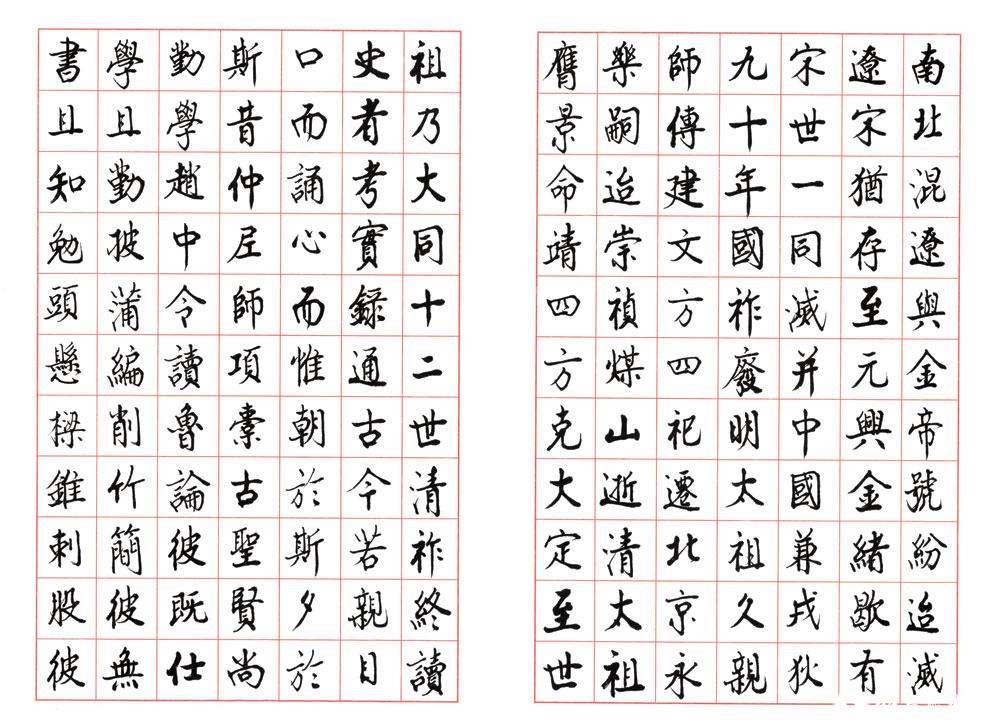 南北混遼與金帝號紛迨滅
遼宋猶存至元興金緒歇有
宋世一同滅并中國兼戎狄
九十年國祚廢明太祖久親
師傳建文方四祀遷北京永
樂嗣迨崇禎煤山逝清太祖
膺景命靖四方克大定至世
祖乃大同十二世清祚終讀
史者考實録通古今若親目
口而誦心而惟朝於斯夕於
斯昔仲尼師項橐古聖賢尚
勤學趙中令讀魯論彼既仕
學且勤披蒲編削竹簡彼無
書且知勉頭懸樑錐刺股彼